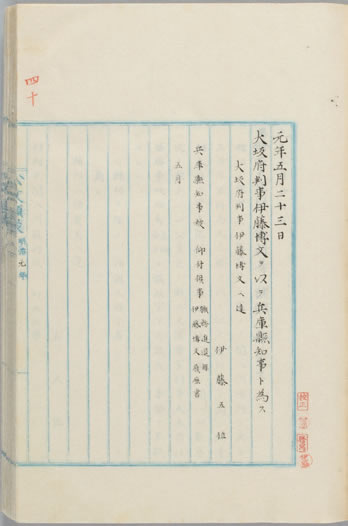 元年五月二十三日
大坂府判事伊藤博文ヲ以テ兵庫縣知事ト為ス
大坂府判事伊藤博文ヘ達
伊藤五位
兵庫縣知事被 仰付候事 職務進退録
伊藤博文履歴書
五月
四十